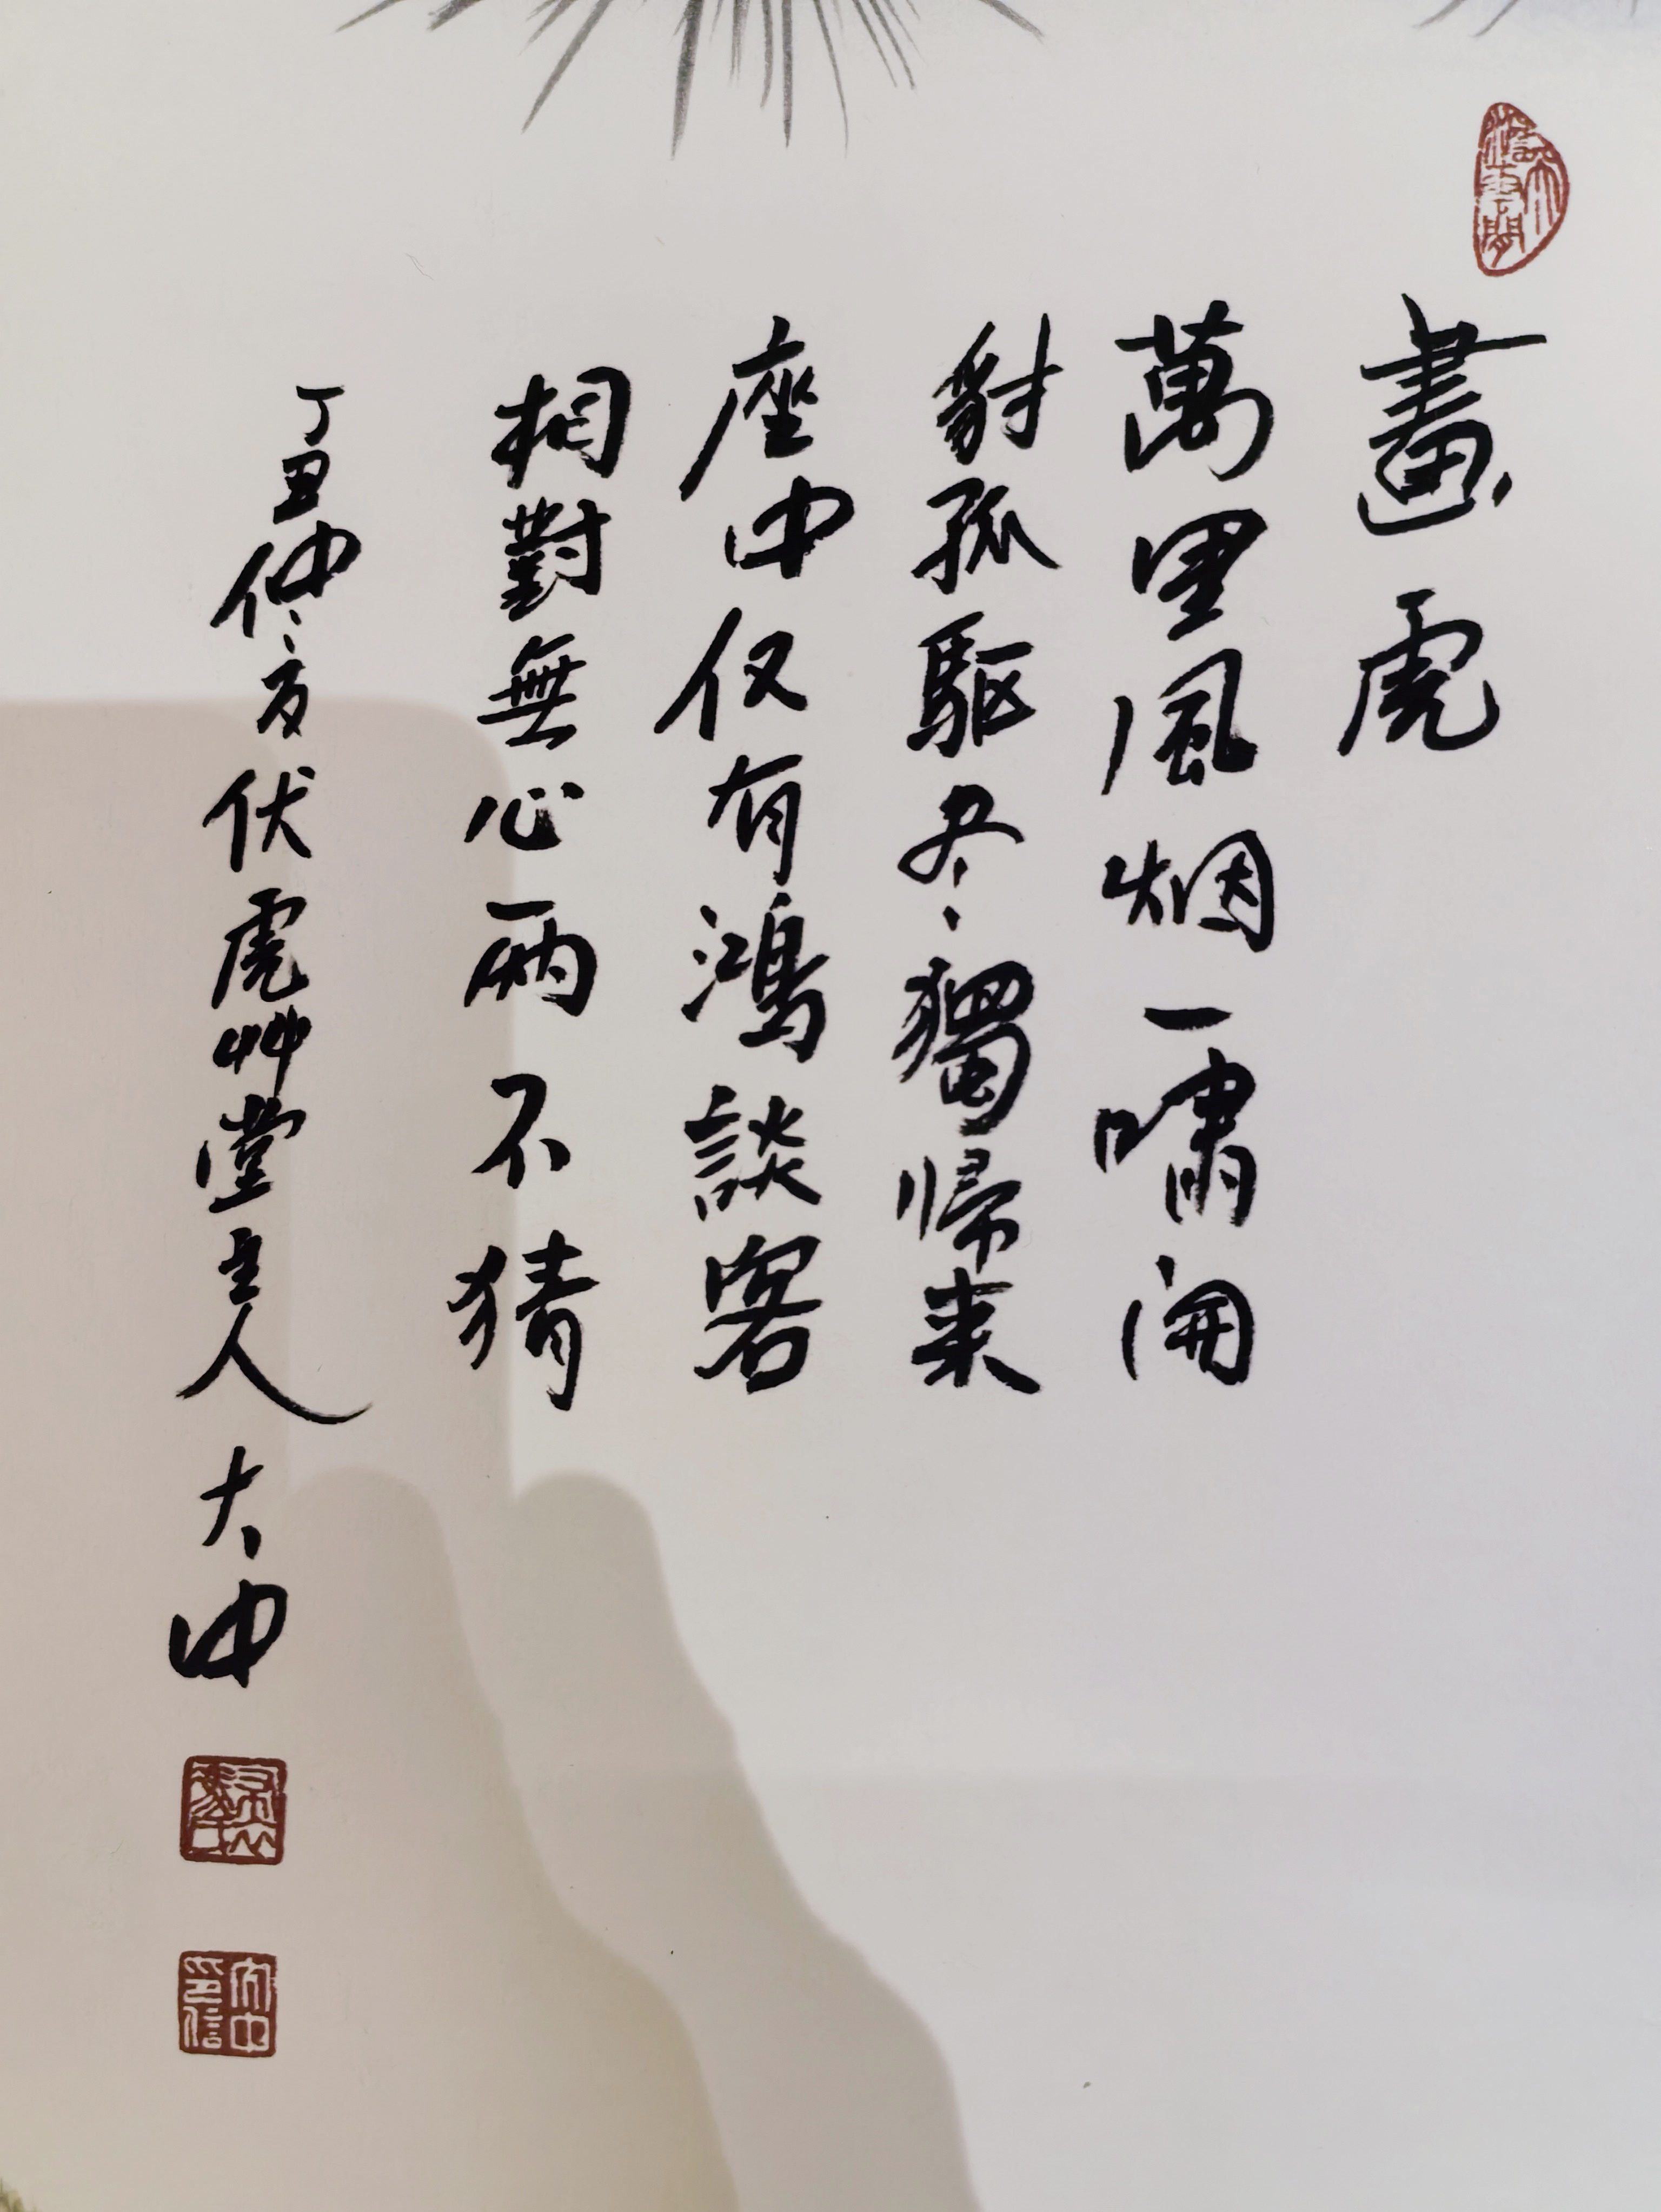 畫虎
萬里風烟一嘯開
豺孤驱尽獨帰来
座中仅有鴻談客
相對無心兩不猜
丁丑仲夏伏虎艸堂主人大中